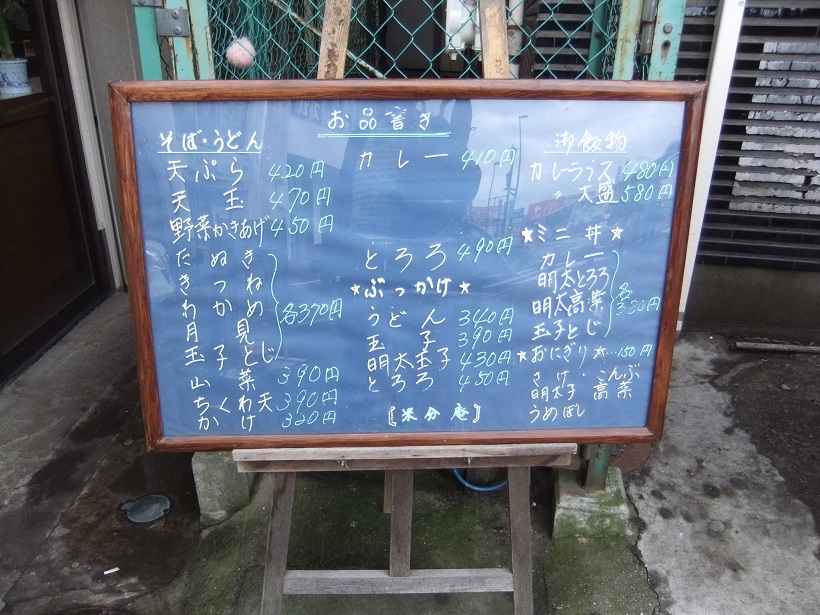 お品書き
そば・うどん
天ぷら 420円
天玉 470円
野菜かきあげ 450円
たぬき
きつね
わかめ
月見
玉子とじ
各370円
山菜 390円
ちくわ天 390円
かけ 320円
カレー 410円
とろろ 490円
★ぶっかけ★
うどん 340円
玉子 390円
明太玉子 430円
とろろ 450円
御飯物
カレーライス 480円
〃 大盛 580円
★ミニ丼★
カレー
明太とろろ
明太高菜
玉子とじ
各330円
★おにぎり★…150円
さけ・こんぶ
明太子・高菜
うめぼし